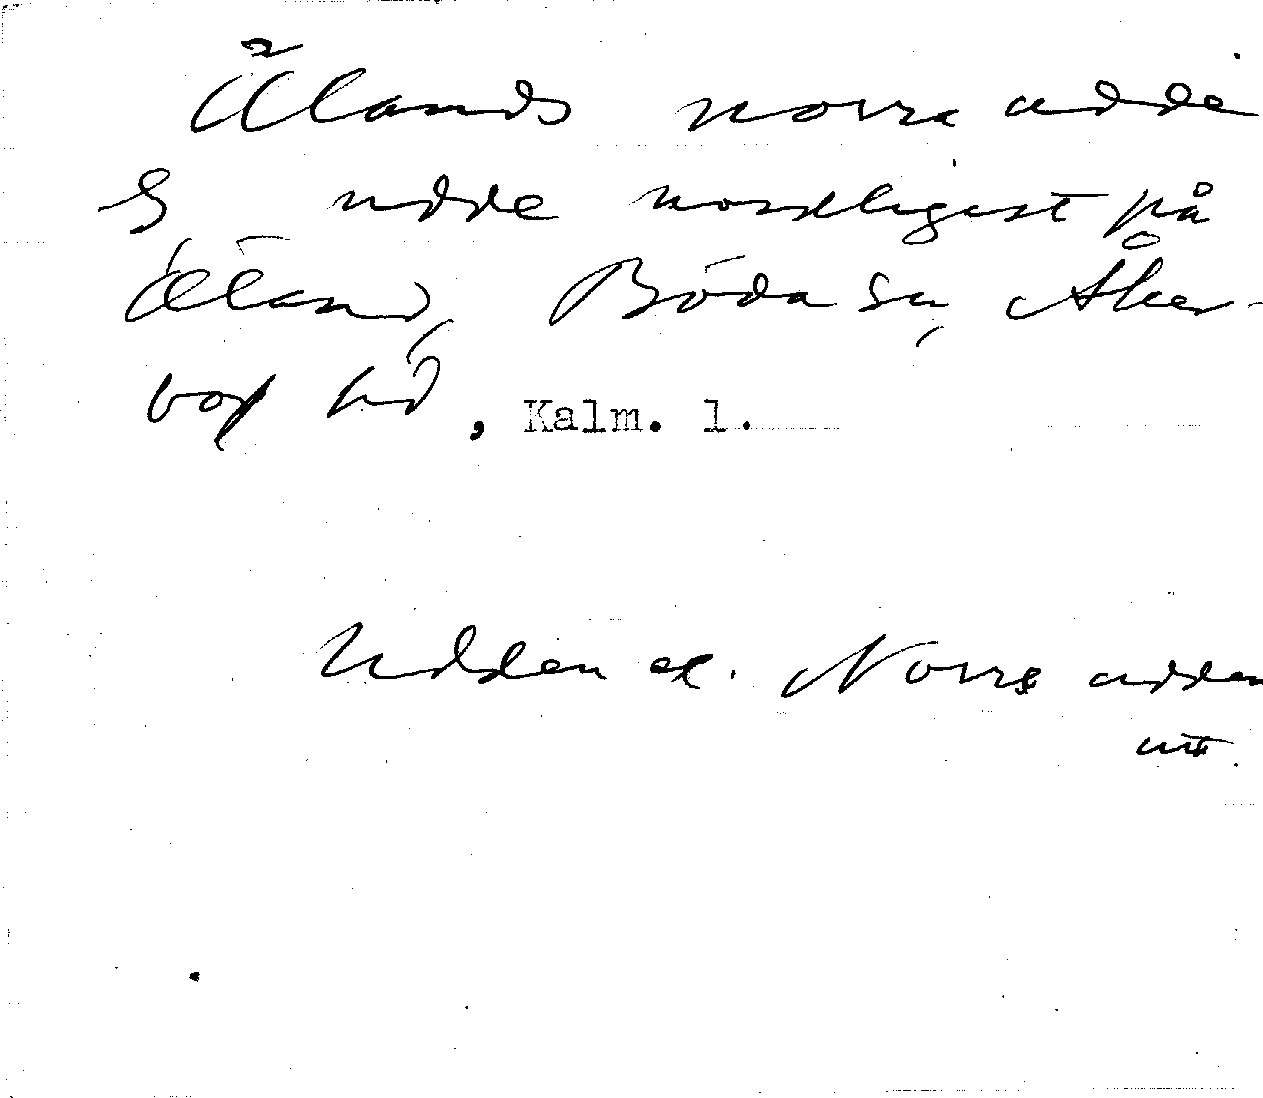 Ölands norra udde
S, udde nordligast på
Öland, Böda sn, Åker-
bo hd, Kalm. l.
Udden el. Norra udden
utt.